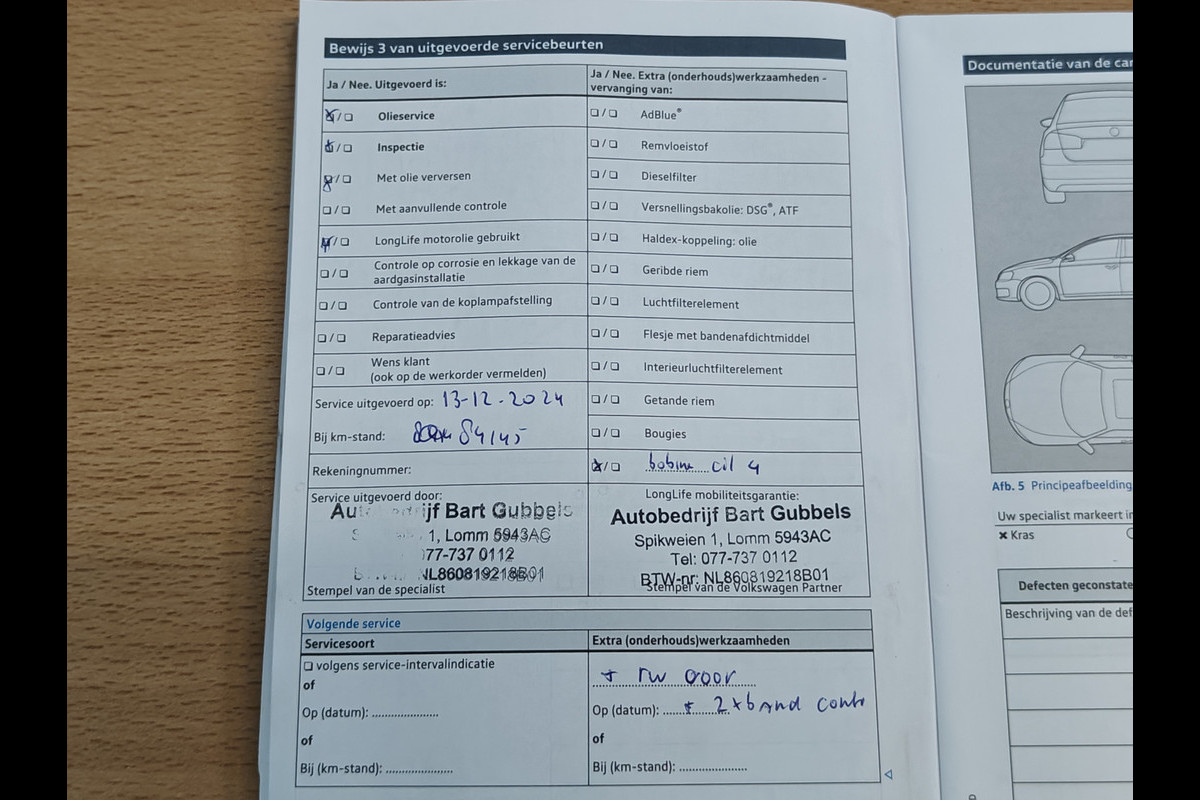 Bewijs 3 van uitgevoerde servicebeurten
Ja / Nee. Uitgevoerd is:
Olieservice
Inspectie
Met olie verversen
Met aanvullende controle
LongLife motorolie gebruikt
Controle op corrosie en lekkage van de
aardgasinstallatie
Controle van de koplampafstelling
Reparatieadvies
Wens klant
(ook op de werkorder vermelden)
Service uitgevoerd op: 13-12-2024
Bij km-stand: 84145
Rekeningnummer:
Service uitgevoerd door:
Autobedrijf Bart Gubbels
1, Lomm 5943AC
077-737 0112
NL860819218B01
Stempel van de specialist
Ja / Nee. Extra (onderhouds)werkzaamheden -
vervanging van:
AdBlue®
Remvloeistof
Dieselfilter
Versnellingsbakolie: DSG®, ATF
Haldex-koppeling: olie
Geribde riem
Luchtfilterelement
Flesje met bandenafdichtmiddel
Interieurluchtfilterelement
Getande riem
Bougies
bobine cil 4
LongLife mobiliteitsgarantie:
Autobedrijf Bart Gubbels
Spikweien 1, Lomm 5943AC
Tel: 077-737 0112
BTW-nr: NL860819218B01
Stempel van de Volkswagen Partner
Volgende service
Servicesoort
volgens service-intervalindicatie
of
Op (datum): ....................
of
Bij (km-stand): ....................
Extra (onderhouds)werkzaamheden
+ rw voor
Op (datum): + 2x band contr
of
Bij (km-stand): ....................
Documentatie van de car
Afb. 5 Principeafbeelding
Uw specialist markeert in
× Kras
Defecten geconstate
Beschrijving van de def